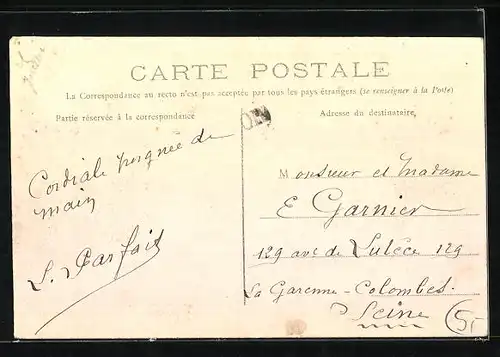 CARTE POSTALE
La Correspondance au recto n'est pas acceptée par tous les pays étrangers (se renseigner à la Poste)
Partie réservée à la correspondance
Adresse du destinataire,
Cordiale poignée de
main
L. Parfait
Monsieur et Madame
E Garnier
129 ave de Lutèce 129
La Garenne-Colombes.
Seine
5-